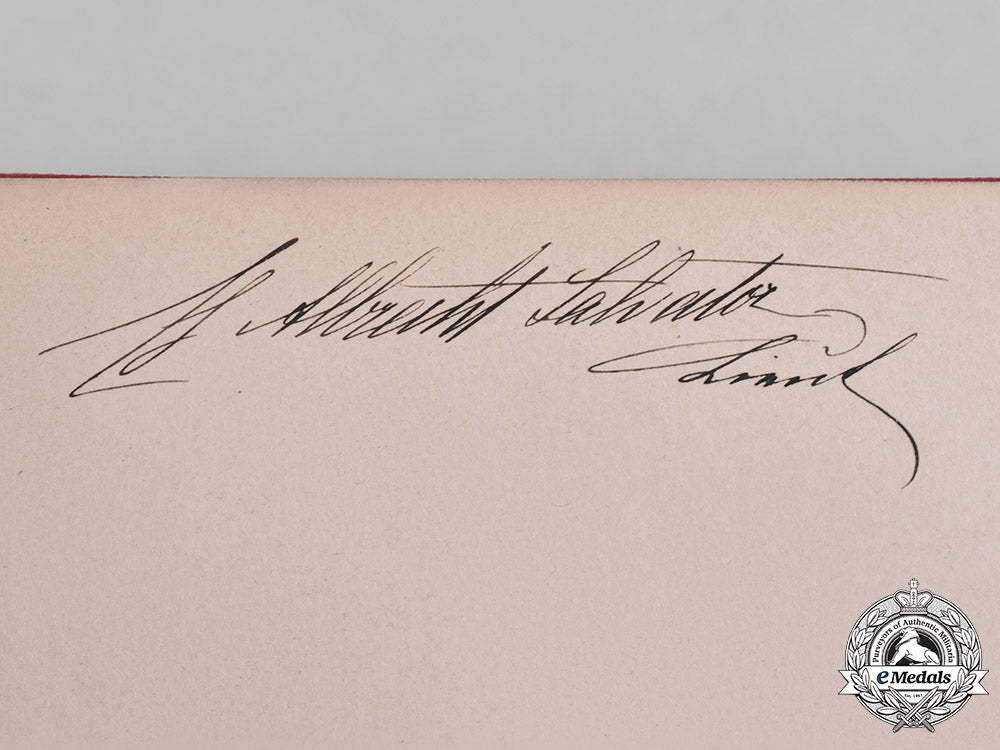 Albrecht Salvator
Lieut
Purveyors of Authentic Militaria
eMedals
Est. 1967